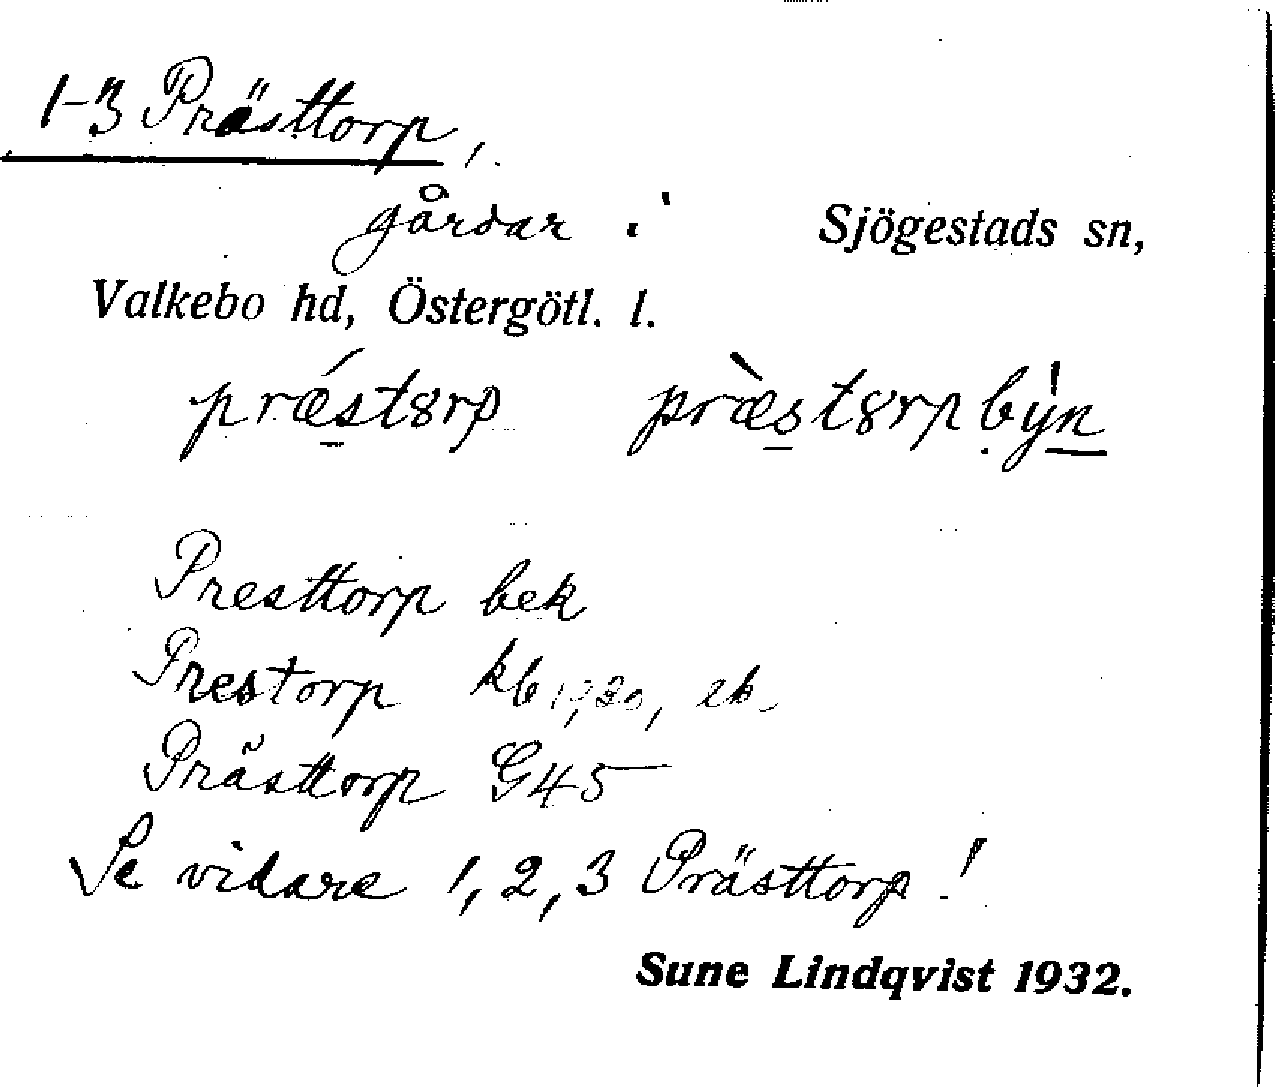 1-3 Prästtorp,
gårdar i Sjögestads sn,
Valkebo hd, Östergötl. l.
prǽst8rp præ̀st8rpbỳn
Presttorp bek
Prestorp kb
Prästtorp G45
Se vidare 1, 2, 3 Prästtorp!
Sune Lindqvist 1932.